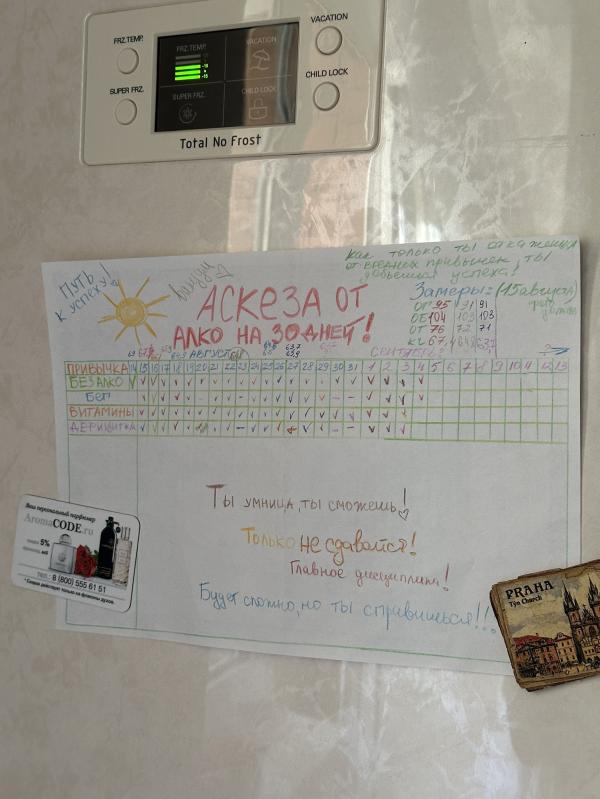 FRZ.TEMP.
SUPER FRZ.
FRZ.TEMP.
VACATION
SUPER FRZ.
CHILD LOCK
VACATION
CHILD LOCK
Total No Frost
ПУТЬ
К УСПЕХУ!
Как только ты откажешься
от вредных привычек, ты
добьешься успеха!
АСКЕЗА ОТ
АЛКО НА 30 ДНЕЙ!
Замеры: (15 августа)
ОГ 95 91 91
ОБ 104 103 103
ОТ 76 72 71
КГ 67,4
АВГУСТ
СЕНТЯБРЬ
ПРИВЫЧКА 14 15 16 17 18 19 20 21 22 23 24 25 26 27 28 29 30 31 1 2 3 4 5 6 7 8 9 10 11 12 13
БЕЗ АЛКО
БЕГ
ВИТАМИНЫ
Ты умница, ты сможешь!
Только не сдавайся!
Главное дисциплина!
Будет сложно, но ты справишься!!!
Ваш персональный парфюмер
AromaCODE.ru
5%
тел.: 8 (800) 555 61 51
PRAHA
Týn Church